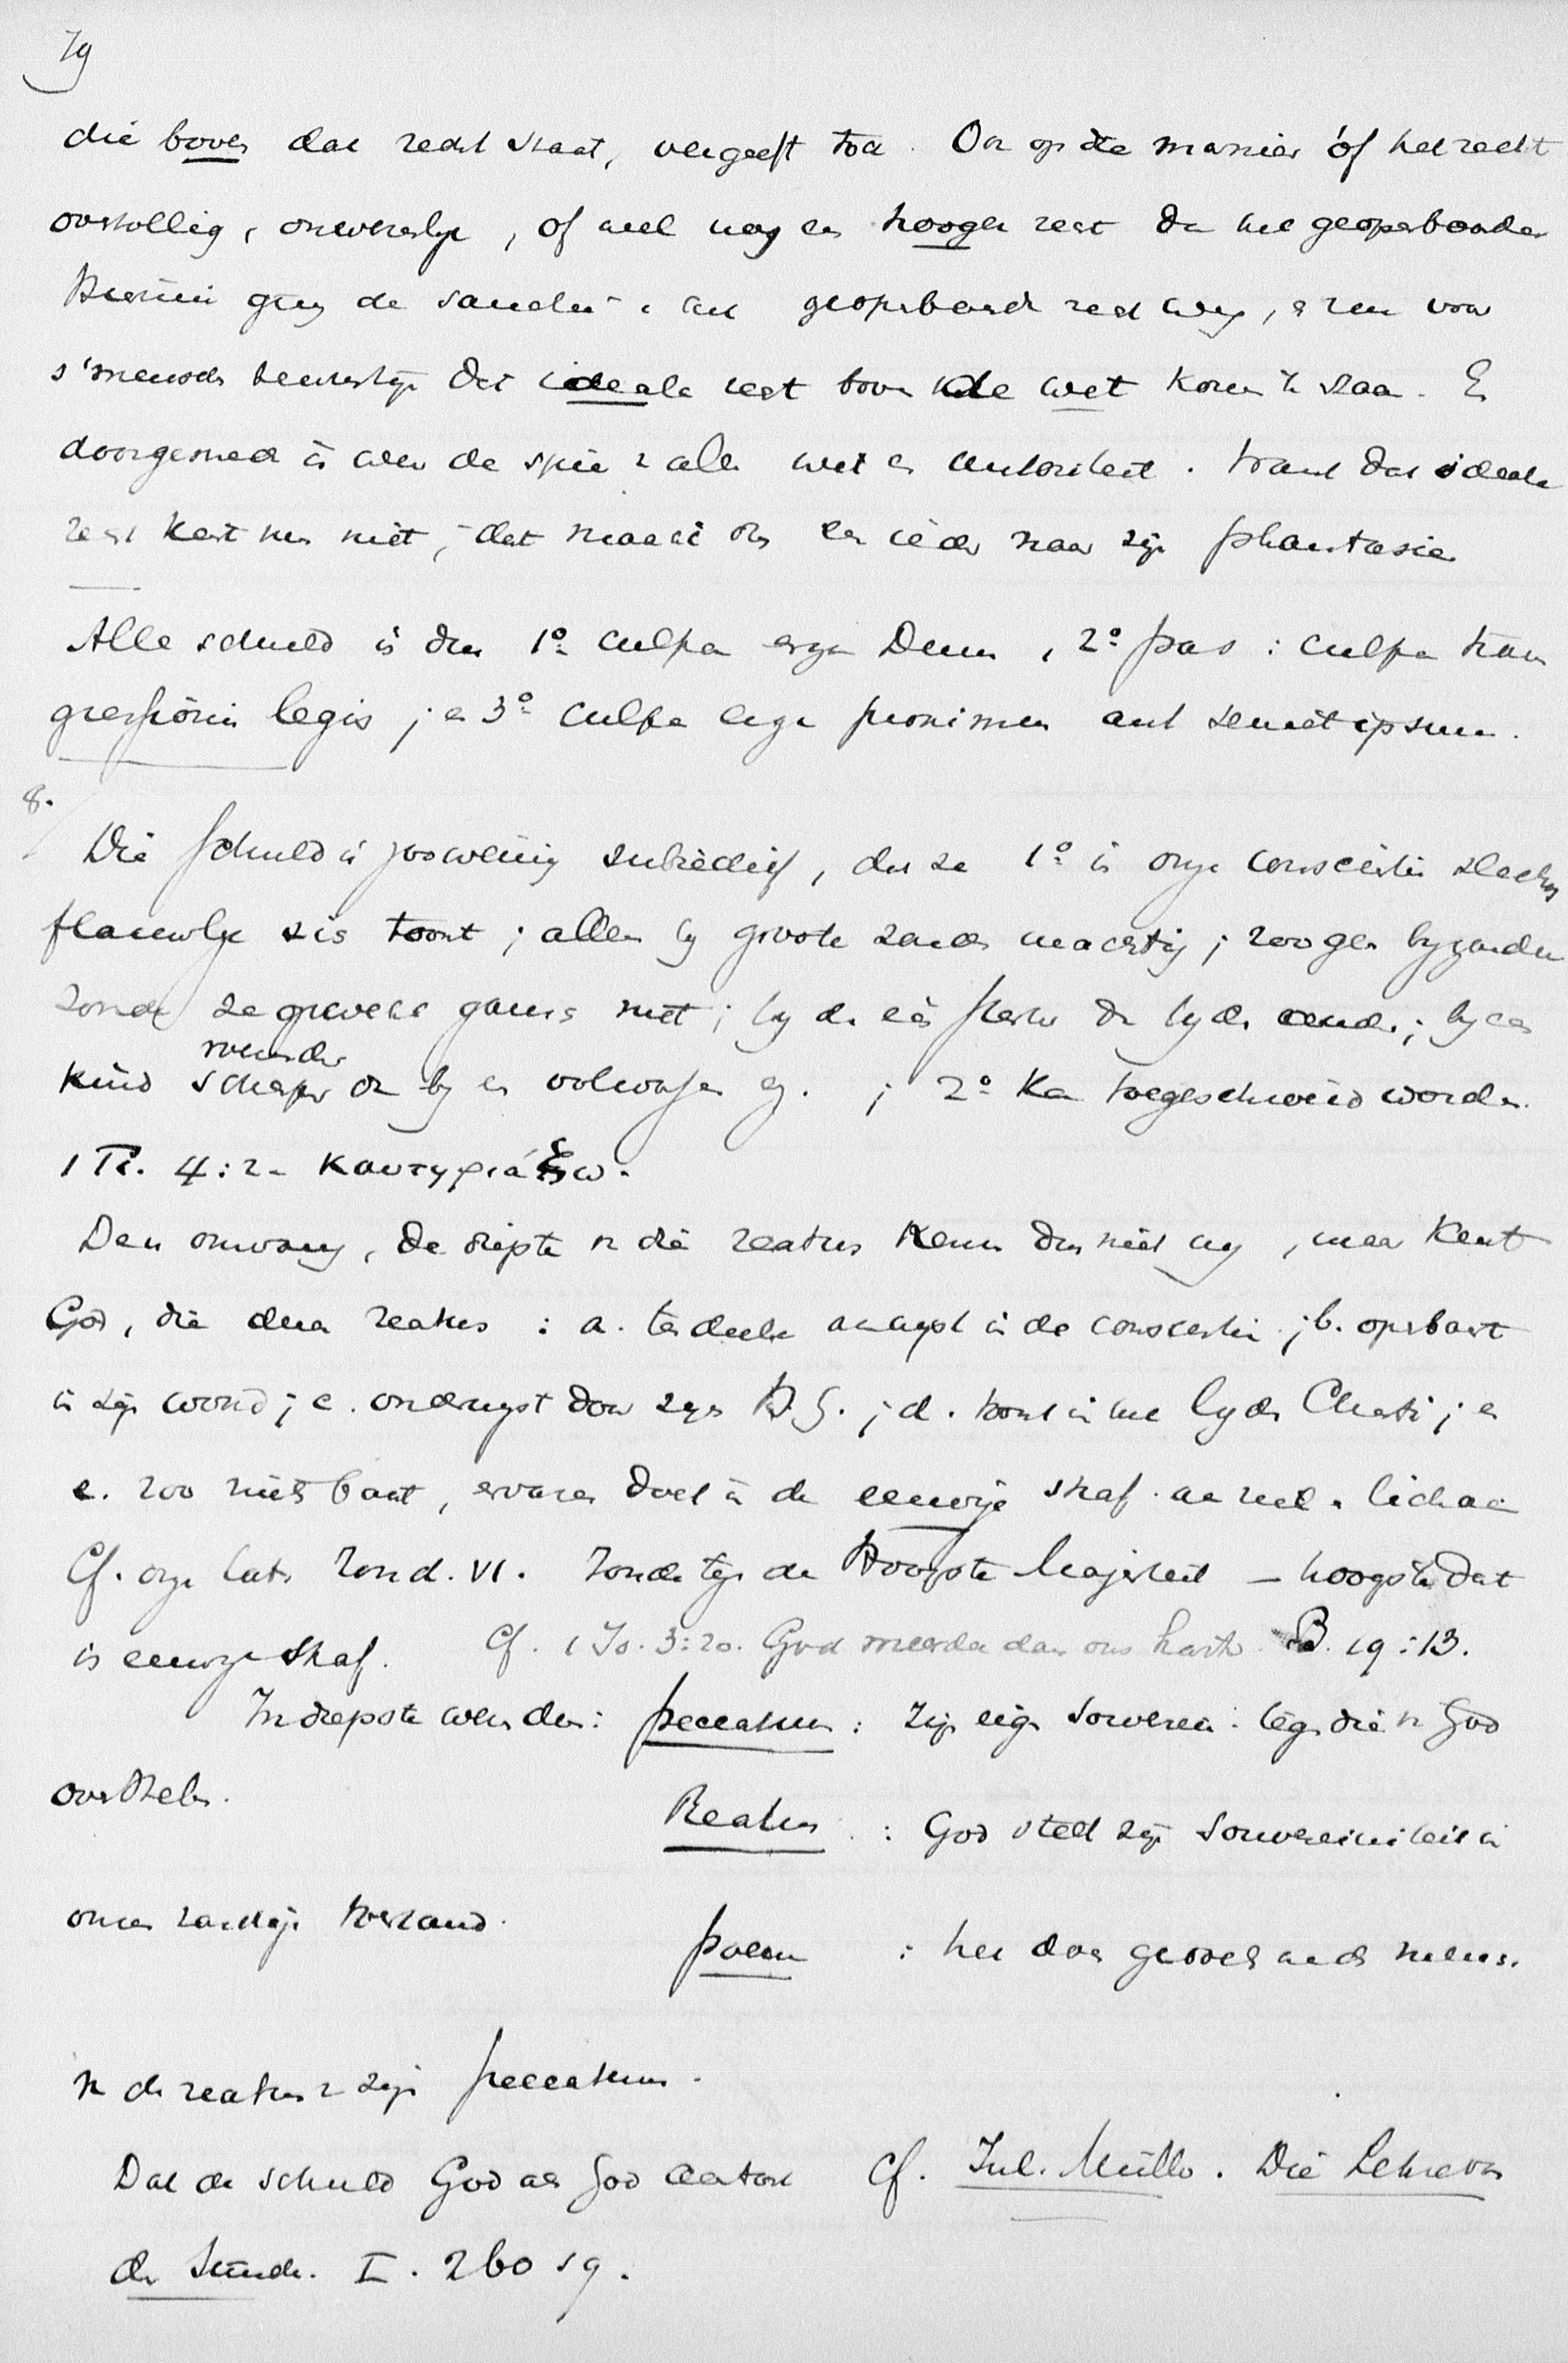 79
die boven dat recht staat, vergeeft toch. Ook op die manier òf het recht
overtollig, onwerklijk, of wel nog een hooger recht dan het geopenbaarde
Hiermee ging de sanctie v. het geopenbaard recht weg, en een voor
s'menschen bewustzijn dat ideale recht boven de wet komen te staan. En
doorgesneden is alweer de spier v alle wet en autoriteit. Want dat ideale
recht kent men niet, dat maakt en ieder naar zijn phantasie
Alle schuld is dus 1º culpa erga Deum, 2º pas: culpa trans
gressionis legis; en 3º culpa erga proximum aut semet ipsum.
8.
Die schuld is zoo weinig subjectief, dat ze 1º in onze conscientie slechts
flauwelijk zich toont; alleen bij groote zonden machtig; zoogen. bijzondere
zonden gansch niet; bij den een sterker dan bij den ander; bij een
minder
kind scherper dan bij een volwassen; 2º kan toegeschroeid worden.
1 Ti. 4:2 - καυτηριάζω.
Den omvang, de diepte v die reatus kennen dus niet wij, maar kent
God, die dezen reatus: a. ten deele in de conscientie; b. openbaart
in zijn woord; c. door zijn H.G.; d. toont in het lijden Christi; en
e. zoo niets baat, ervaren doet in de eeuwige straf aan ziel en lichaam
Cf. onze Cat. Zond. VI. Zonde tegen de Hoogste Majesteit — hoogste dat
is eeuwige straf. Cf. 1 Jo. 3:20. God meerder dan ons hart. Ps. 19:13.
In diepste wezen dus: peccatum: zijn eigen souverein. tegen die v God
overstellen.
Reatus: God stelt zijn souvereiniteit in
onzen zondigen toestand.
poena: het doen gevoelen aan den mensch.
v den reatus v zijn peccatum.
Dat de schuld God als God aantast Cf. Jul. Müller. Die Lehre von
der Sünde. I. 260 sq.